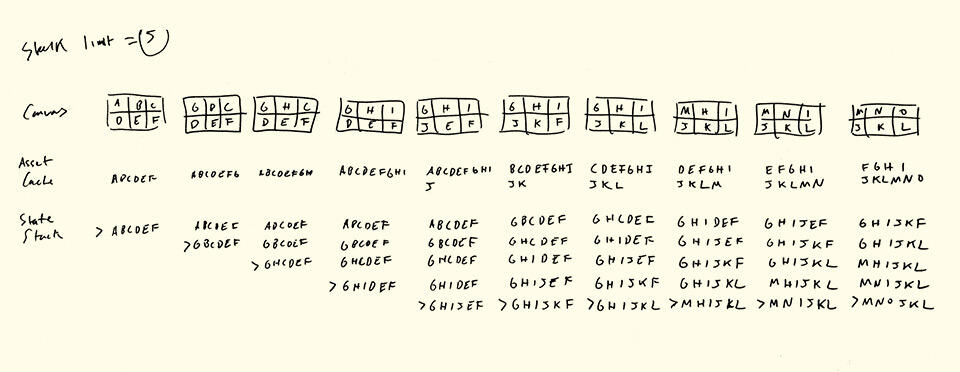 Stack limit = 5
Canvas
A B C G B C G H C G H I G H I G H I G H I M H I M N I M N O
D E F D E F D E F D E F J E F J K F J K L J K L J K L J K L
Asset ABCDEF ABCDEFG ABCDEFGH ABCDEFGHI ABCDEFGHI BCDEFGHI CDEFGHI DEFGHI EFGHI FGHI
Cache J JK JKL JKLM JKLMN JKLMNO
State
Stack
> ABCDEF ABCDEF ABCDEF ABCDEF ABCDEF GBCDEF GHCDEF GHIDEF GHIJEF GHIJKF
> GBCDEF GBCDEF GBCDEF GBCDEF GHCDEF GHIDEF GHIJEF GHIJKF GHIJKL
> GHCDEF GHCDEF GHCDEF GHIDEF GHIJEF GHIJKF GHIJKL MHIJKL
> GHIDEF GHIDEF GHIJEF GHIJKF GHIJKL MHIJKL MNIJKL
> GHIJEF > GHIJKF > GHIJKL > MHIJKL > MNIJKL > MNOJKL